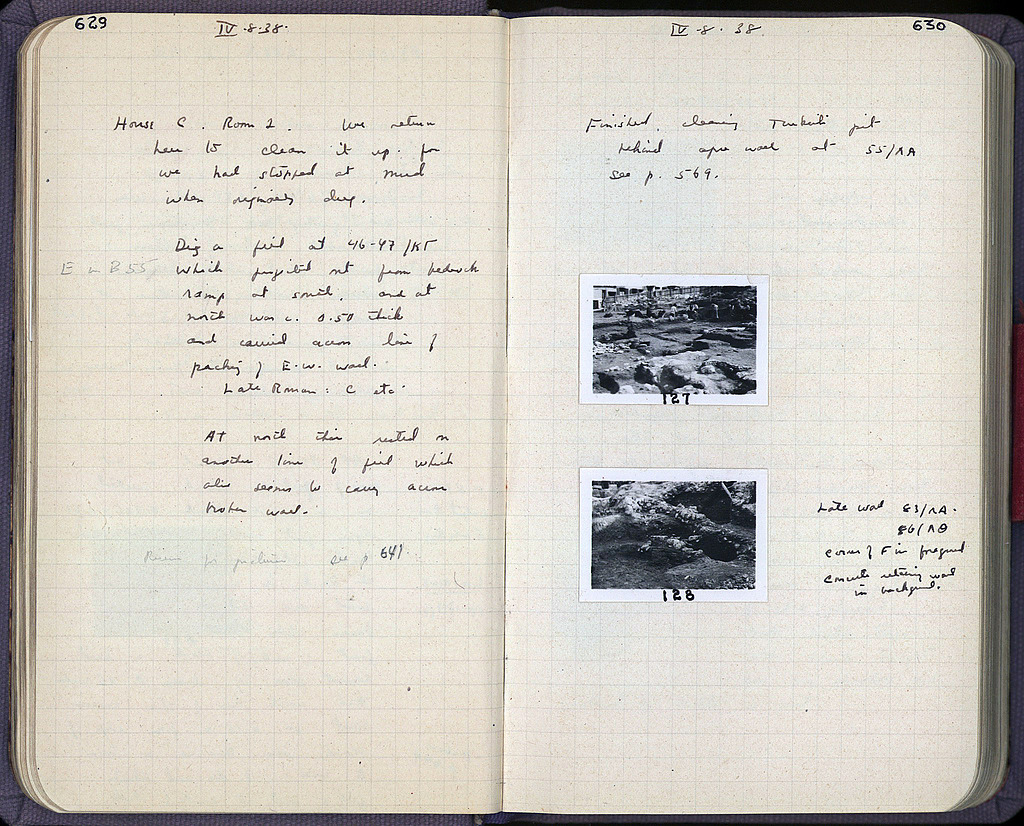 629
IV-8-38.
House C. Room 2. We return
here to clean it up. for
we had stopped at mud
when originally dug.
Dig a fill at 46-47/ΚΓ
E in B 55
which projected out from bedrock
ramp at south, and at
north was c. 0.50 thick
and carried across line of
packing of E.W. wall.
Late Roman: C etc.
At north this rested on
another line of fill which
also seems to carry across
broken wall.
for see p 641
IV-8. 38.
630
Finished cleaning Turkish pit
behind apse wall at 55/ΛΑ
see p. 569.
127
128
Late wall 83/ΛΑ.
86/ΛΘ
corner of F in foreground
Concrete retaining wall
in background.